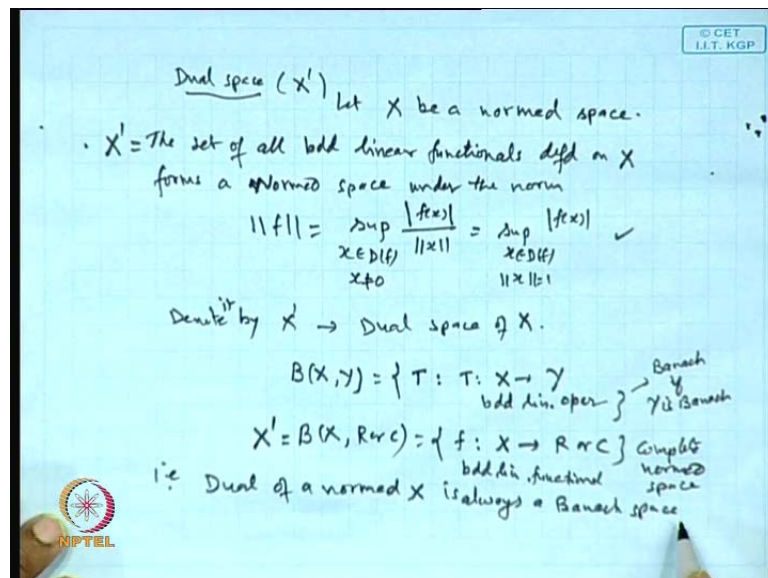 © CET
I.I.T. KGP
Dual space (X')
Let X be a normed space.
X' = The set of all bdd linear functionals defd on X
forms a Normed space under the norm
||f|| = sup |f(x)| / ||x|| = sup |f(x)| ✓
x∈D(f) x∈D(f)
x≠0 ||x||=1
Denote it by X' → Dual space of X.
B(X,Y) = { T : T : X → Y } → Banach
bdd lin. oper if
Y is Banach
X' = B(X, R or C) = { f : X → R or C } Complete
bdd lin. functional normed
space
i.e Dual of a normed X is always a Banach space
NPTEL